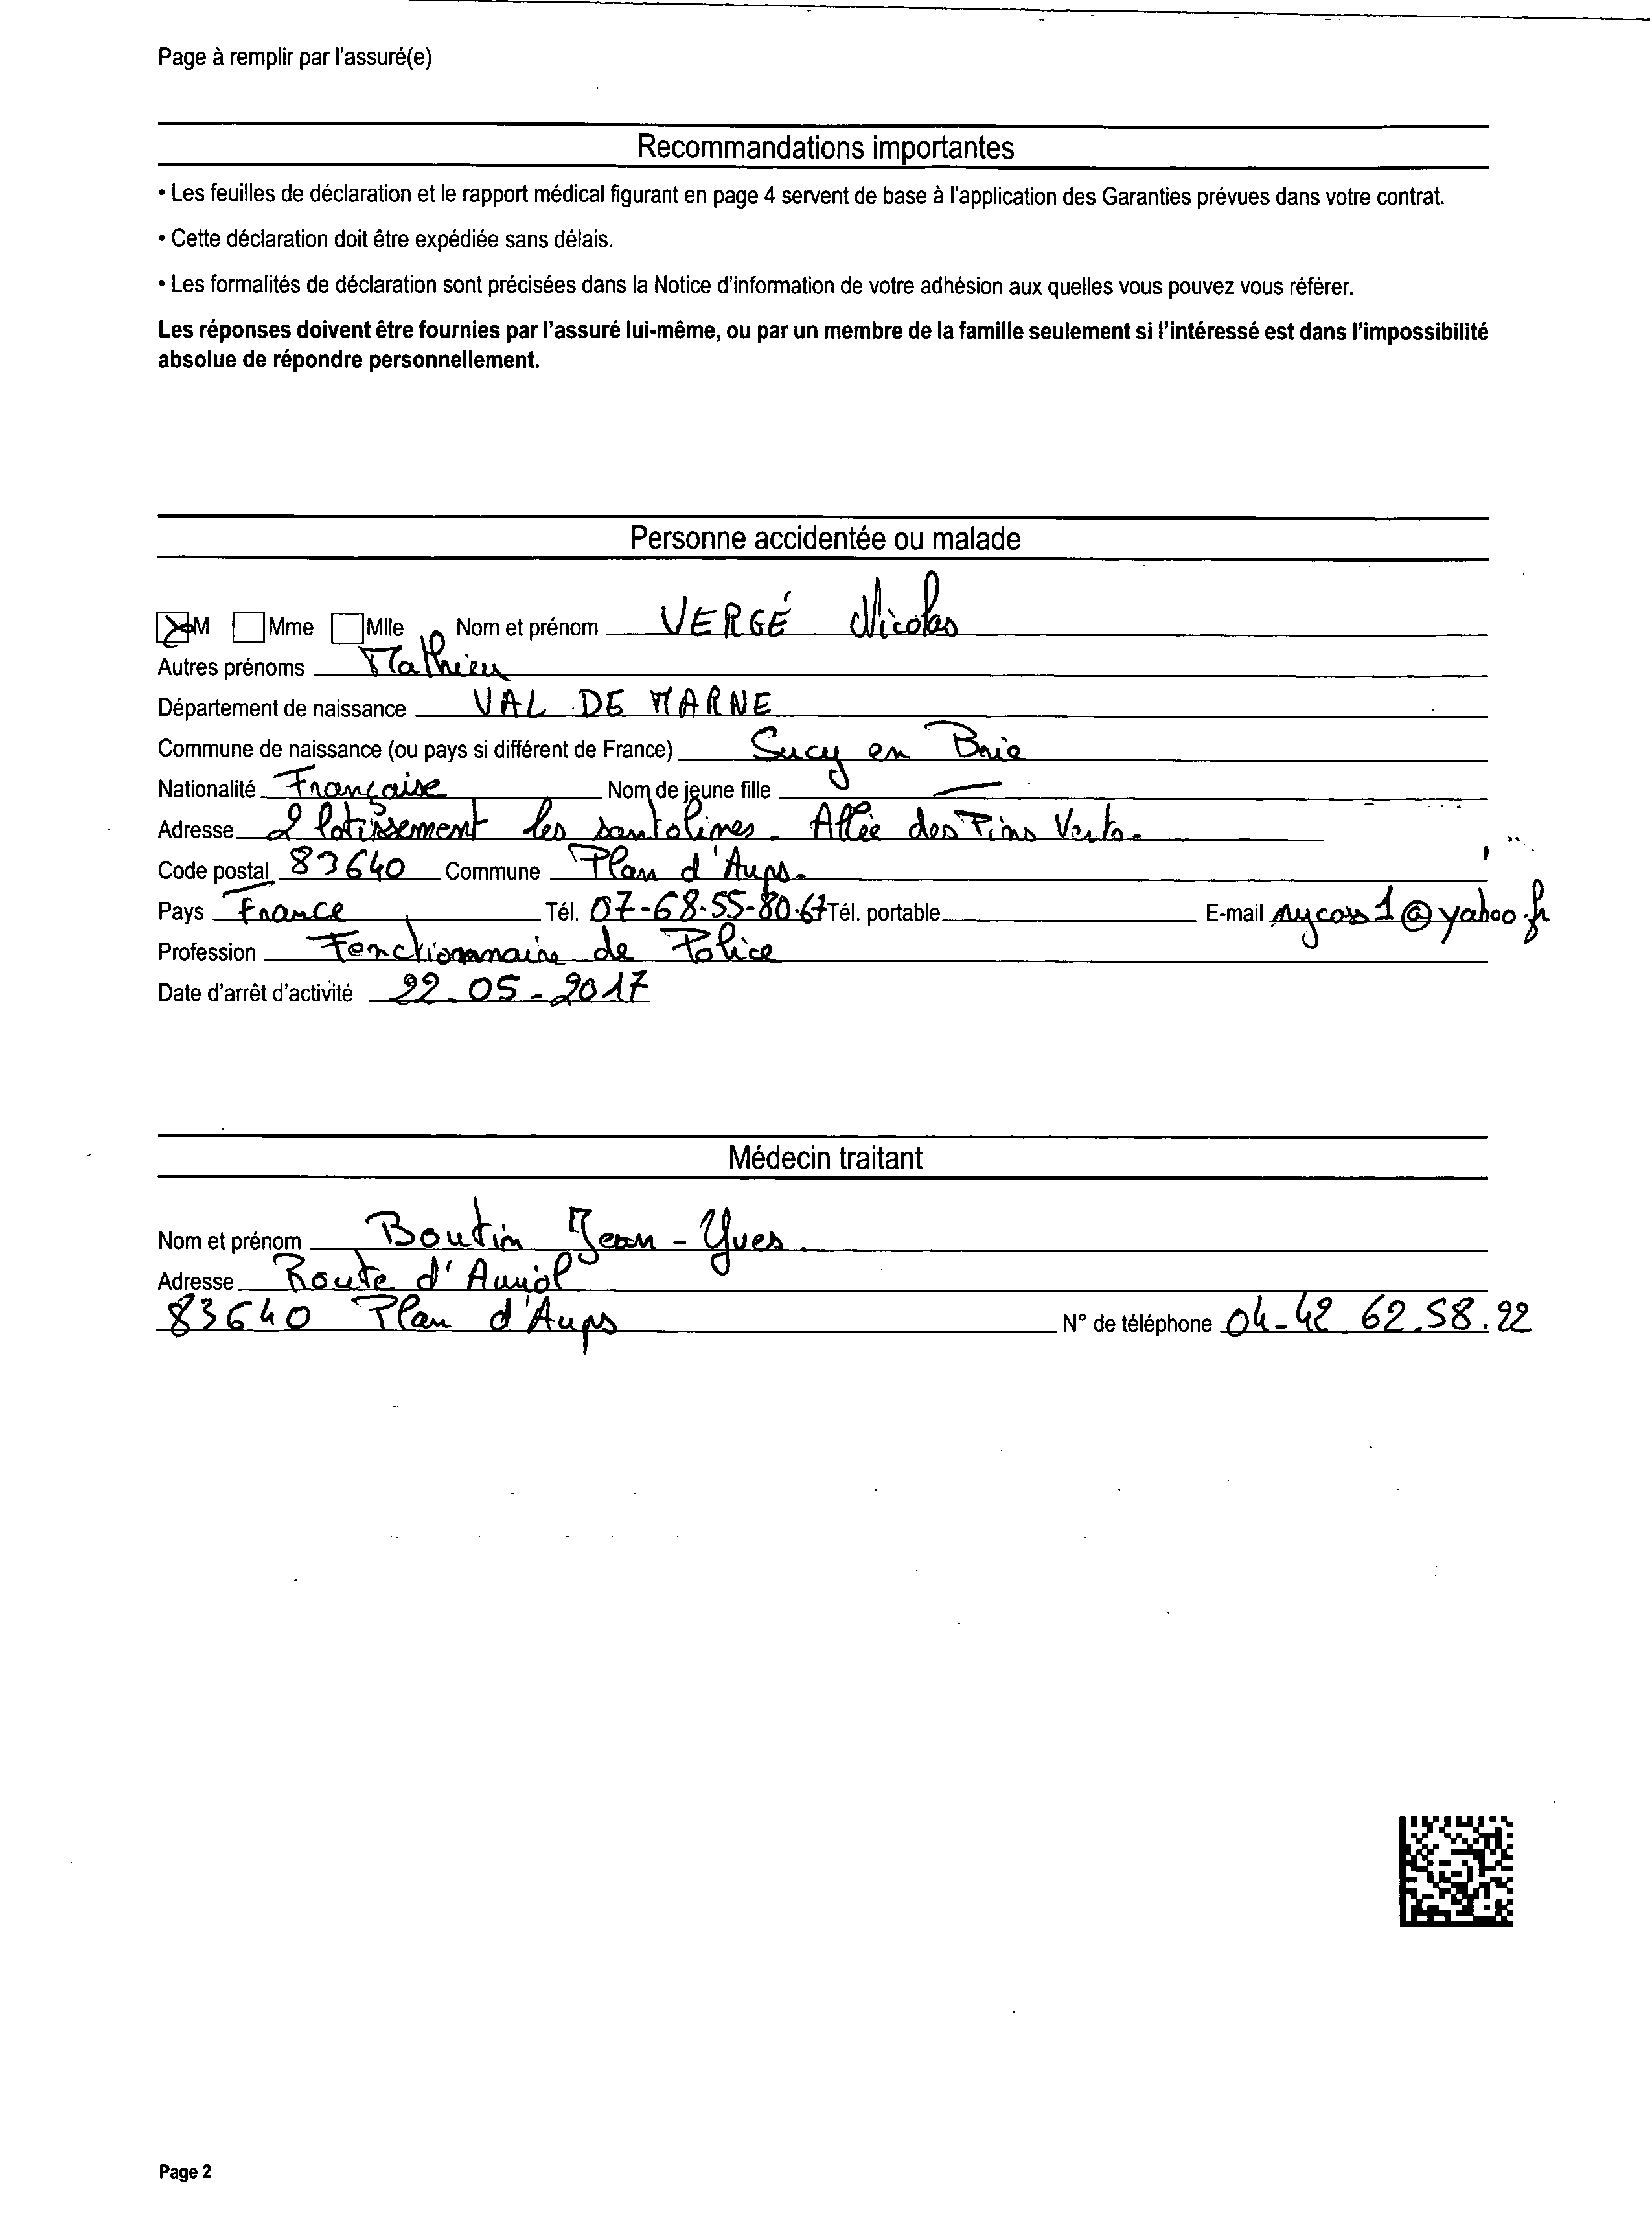 Page à remplir par l'assuré(e)
Recommandations importantes
• Les feuilles de déclaration et le rapport médical figurant en page 4 servent de base à l'application des Garanties prévues dans votre contrat.
• Cette déclaration doit être expédiée sans délais.
• Les formalités de déclaration sont précisées dans la Notice d'information de votre adhésion aux quelles vous pouvez vous référer.
Les réponses doivent être fournies par l'assuré lui-même, ou par un membre de la famille seulement si l'intéressé est dans l'impossibilité
absolue de répondre personnellement.
Personne accidentée ou malade
M Mme Mlle Nom et prénom VERGÉ Nicolas
Autres prénoms Mathieu
Département de naissance VAL DE MARNE
Commune de naissance (ou pays si différent de France) Sucy en Brie
Nationalité Française Nom de jeune fille —
Adresse 2 lotissement les santolines. Allée des Pins Verts-
Code postal 83640 Commune Plan d'Aups-
Pays France Tél. 07-68-55-80-67 Tél. portable E-mail nycoss1@yahoo.fr
Profession Fonctionnaire de Police
Date d'arrêt d'activité 22-05-2017
Médecin traitant
Nom et prénom Boutin Jean-Yves.
Adresse Route d'Auriol
83640 Plan d'Aups N° de téléphone 04-42-62.58.22
Page 2